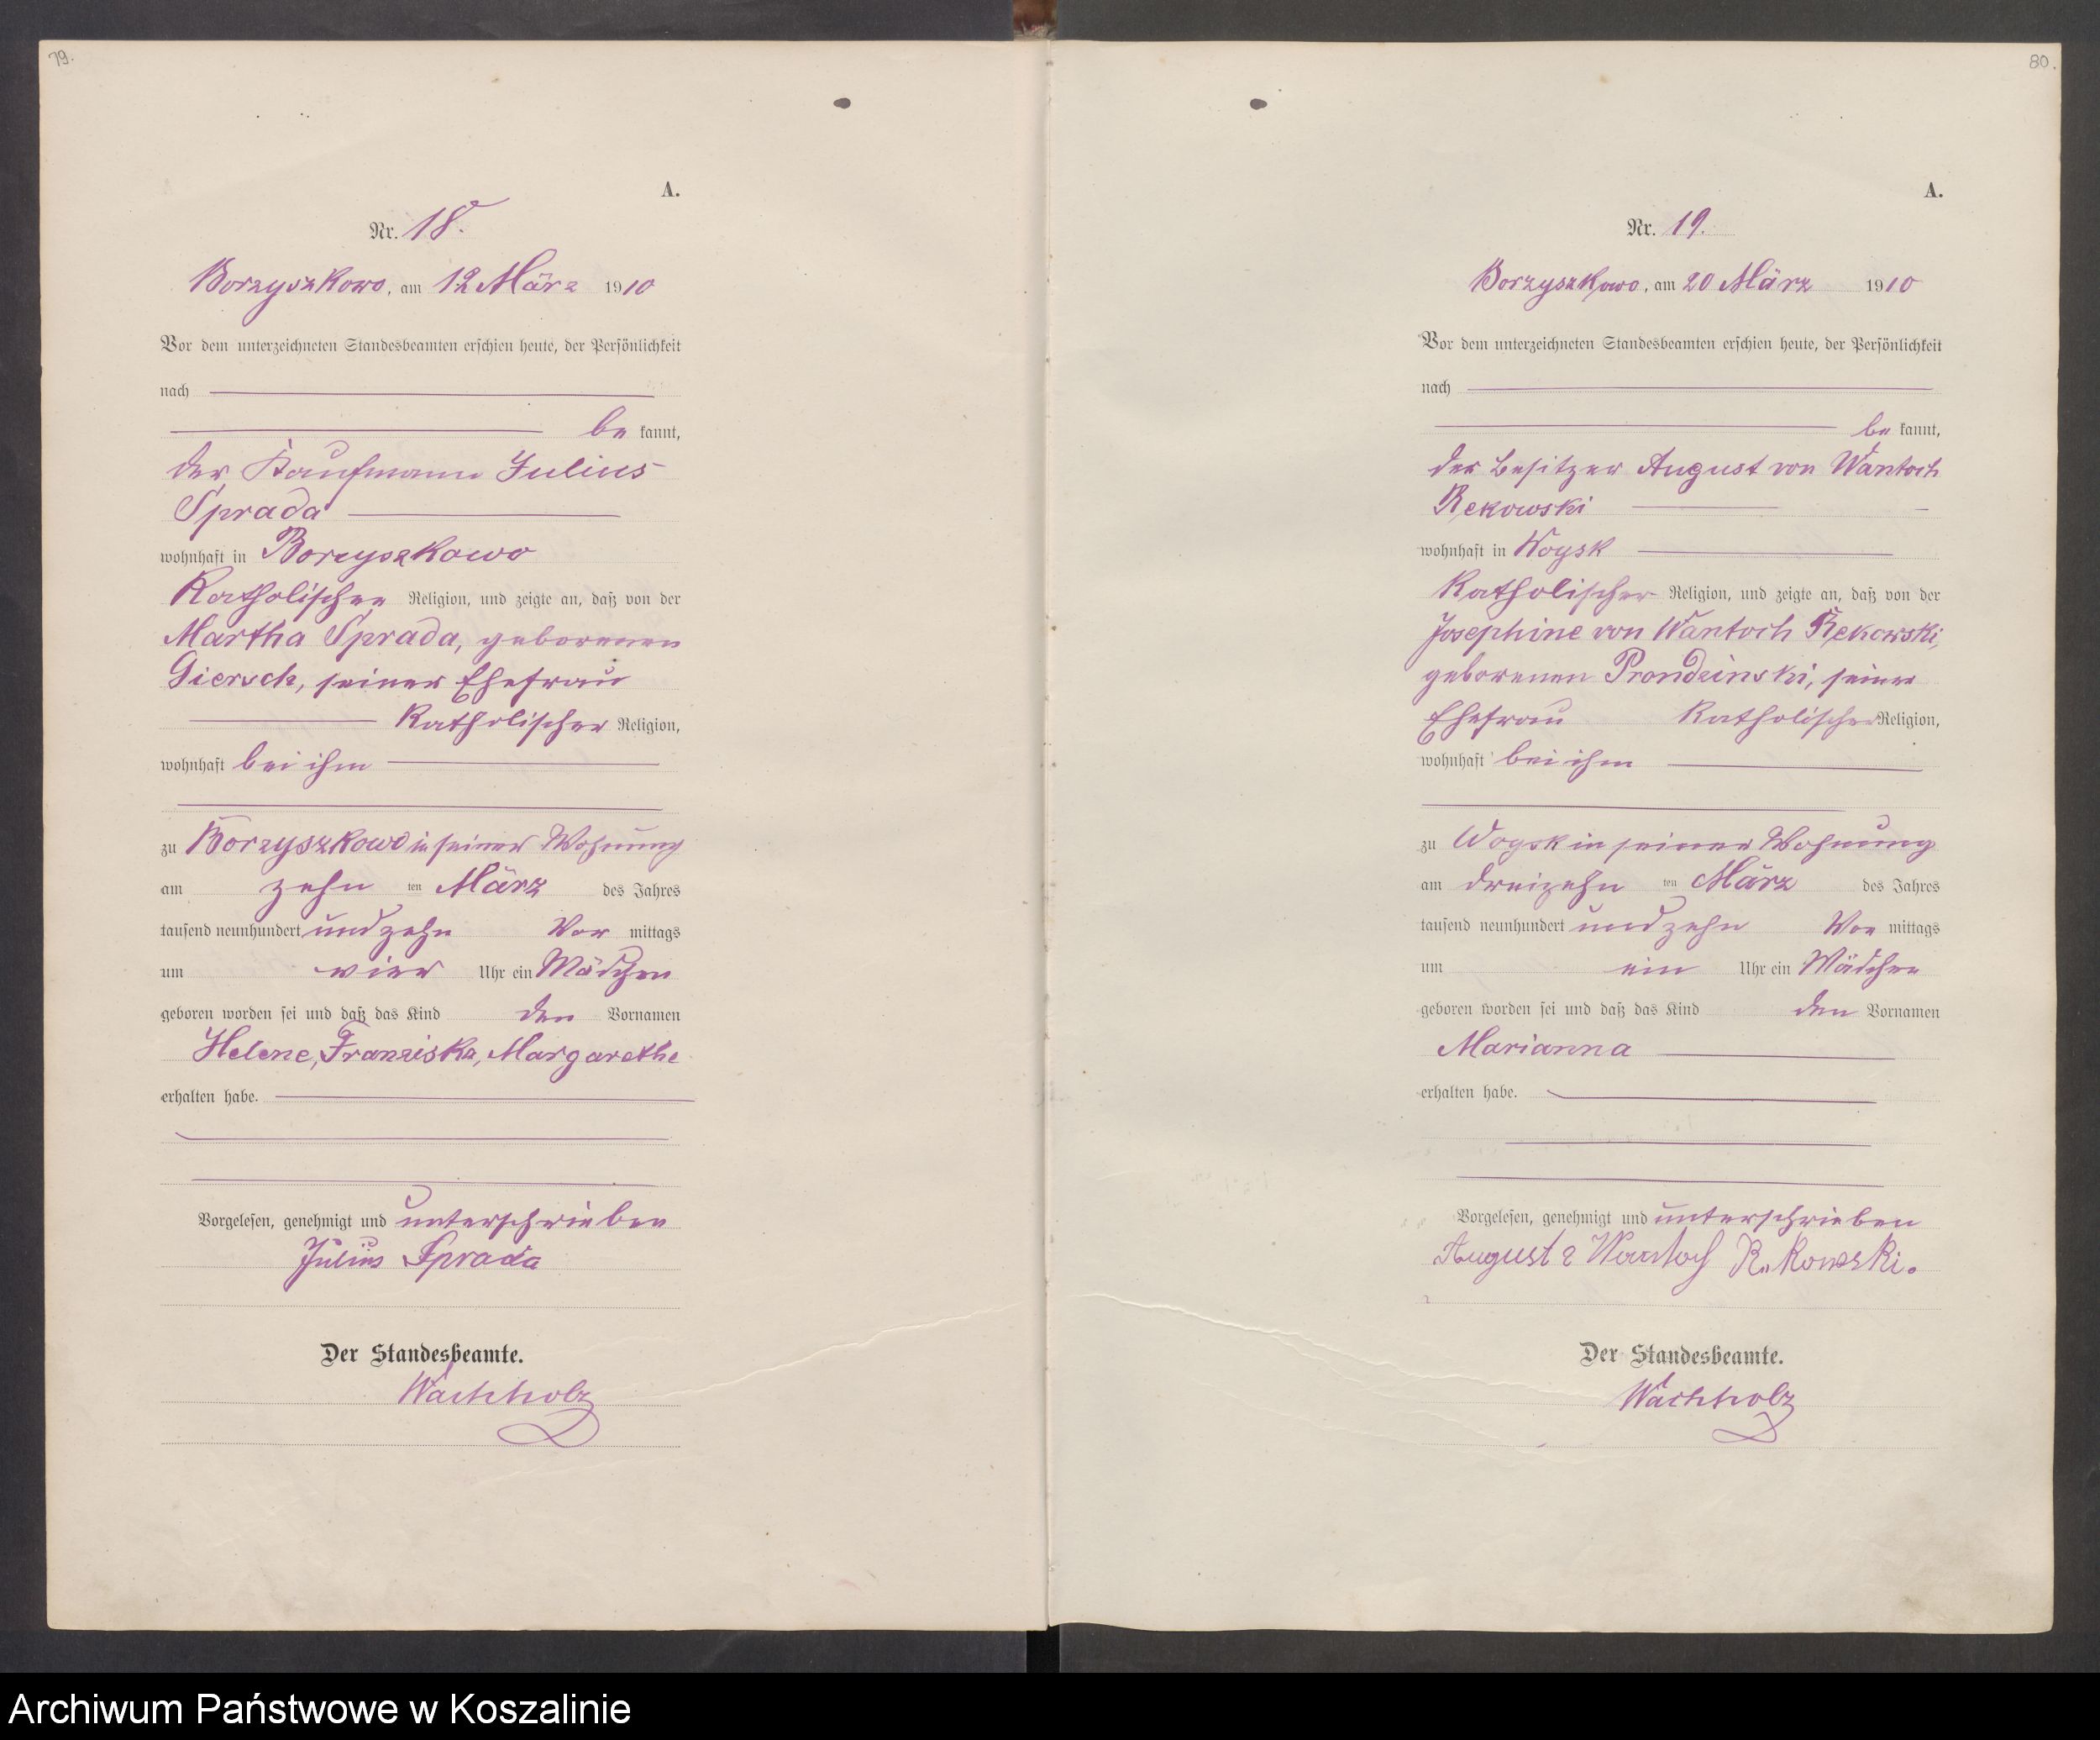 79.
A.
Nr. 18.
Borzyszkowo, am 12 März 1910
Vor dem unterzeichneten Standesbeamten erschien heute, der Persönlichkeit
nach
be kannt,
der Kaufmann Julius
Sprada
wohnhaft in Borzyszkowo
Katholischer Religion, und zeigte an, daß von der
Martha Sprada, geborenen
Giersch, seiner Ehefrau
Katholischer Religion,
wohnhaft bei ihm
zu Borzyszkowo in seiner Wohnung
am zehn ten März des Jahres
tausend neunhundert und zehn Vor mittags
um vier Uhr ein Mädchen
geboren worden sei und daß das Kind den Vornamen
Helene, Franziska, Margarethe
erhalten habe.
Vorgelesen, genehmigt und unterschrieben
Julius Sprada
Der Standesbeamte.
Wachholz
80.
A.
Nr. 19.
Borzyszkowo, am 20 März 1910
Vor dem unterzeichneten Standesbeamten erschien heute, der Persönlichkeit
nach
be kannt,
der Besitzer August von Wantoch
Rekowski
wohnhaft in Woysk
Katholischer Religion, und zeigte an, daß von der
Josephine von Wantoch Rekowski,
geborenen Prondzinski, seiner
Ehefrau Katholischer Religion,
wohnhaft bei ihm
zu Woysk in seiner Wohnung
am dreizehn ten März des Jahres
tausend neunhundert und zehn Vor mittags
um ein Uhr ein Mädchen
geboren worden sei und daß das Kind den Vornamen
Marianna
erhalten habe.
Vorgelesen, genehmigt und unterschrieben
August Wantoch Rekowski.
Der Standesbeamte.
Wachholz
Archiwum Państwowe w Koszalinie